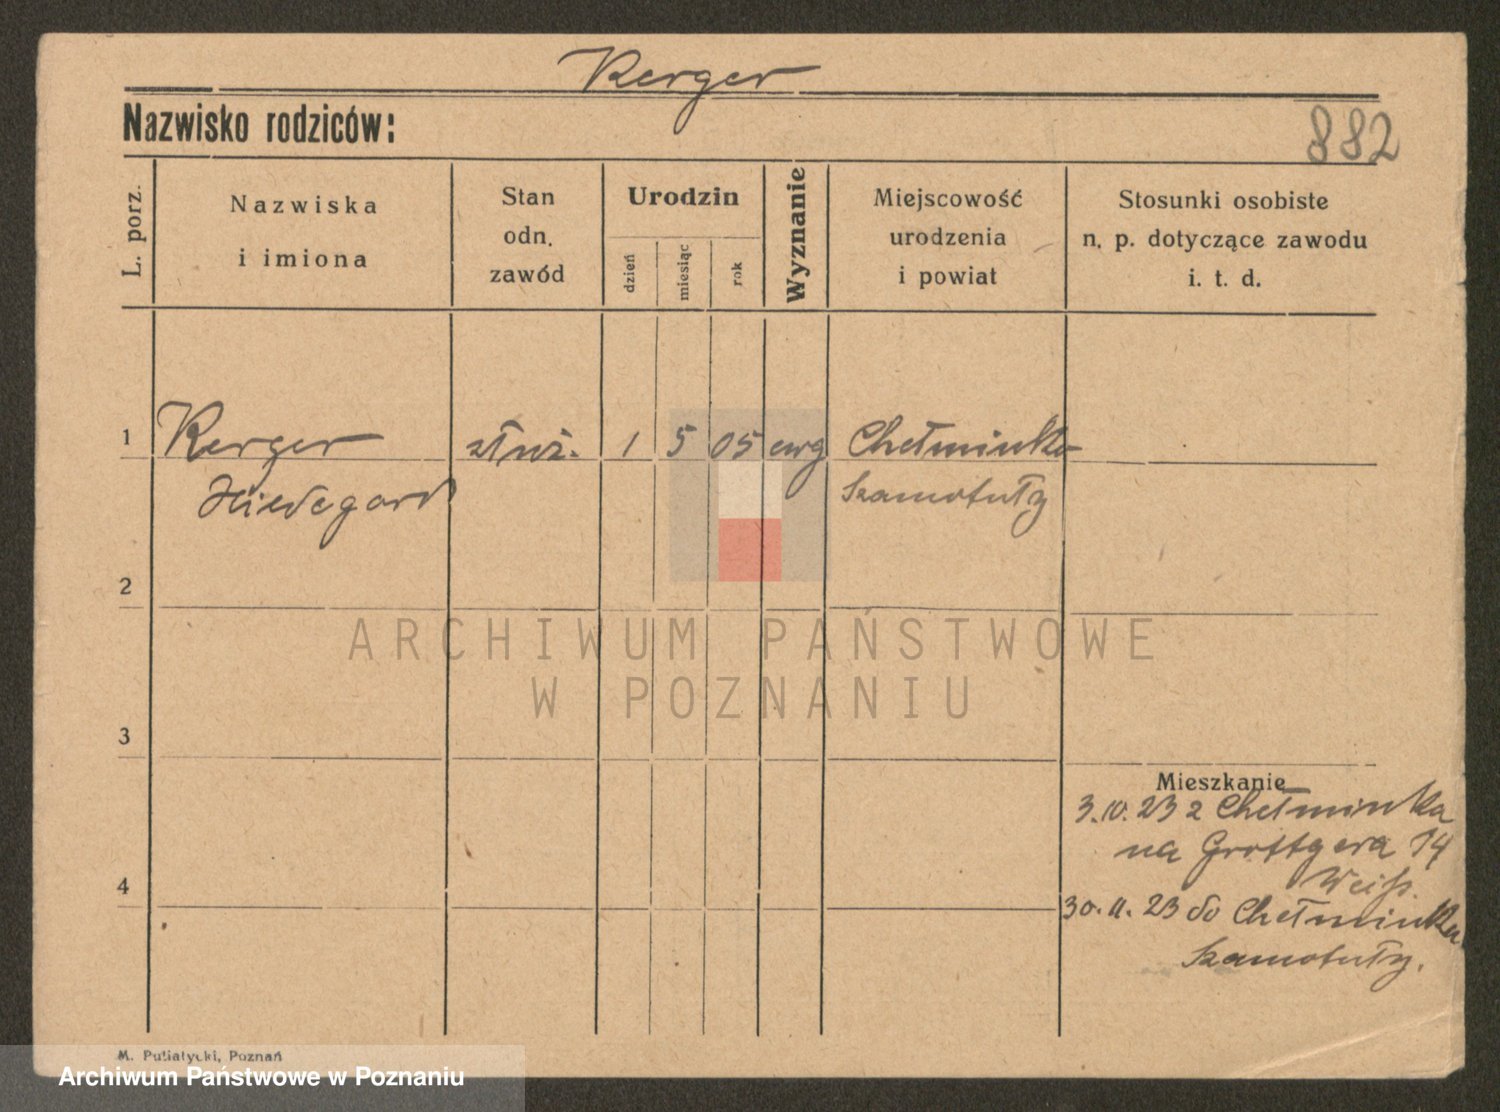 Kerger
Nazwisko rodziców:
882
L. porz.
Nazwiska
i imiona
Stan
odn.
zawód
Urodzin
dzień
miesiąc
rok
Wyznanie
Miejscowość
urodzenia
i powiat
Stosunki osobiste
n. p. dotyczące zawodu
i. t. d.
1 Kerger służ. 1 5 05 ewg Chełminko
Hildegard Szamotuły
2
ARCHIWUM PAŃSTWOWE
W POZNANIU
3
Mieszkanie
3.10.23 z Chełminka
na Grottgera 14
Weiß.
4
30.11.23 do Chełminka
Szamotuły.
M. Putiatycki, Poznań
Archiwum Państwowe w Poznaniu